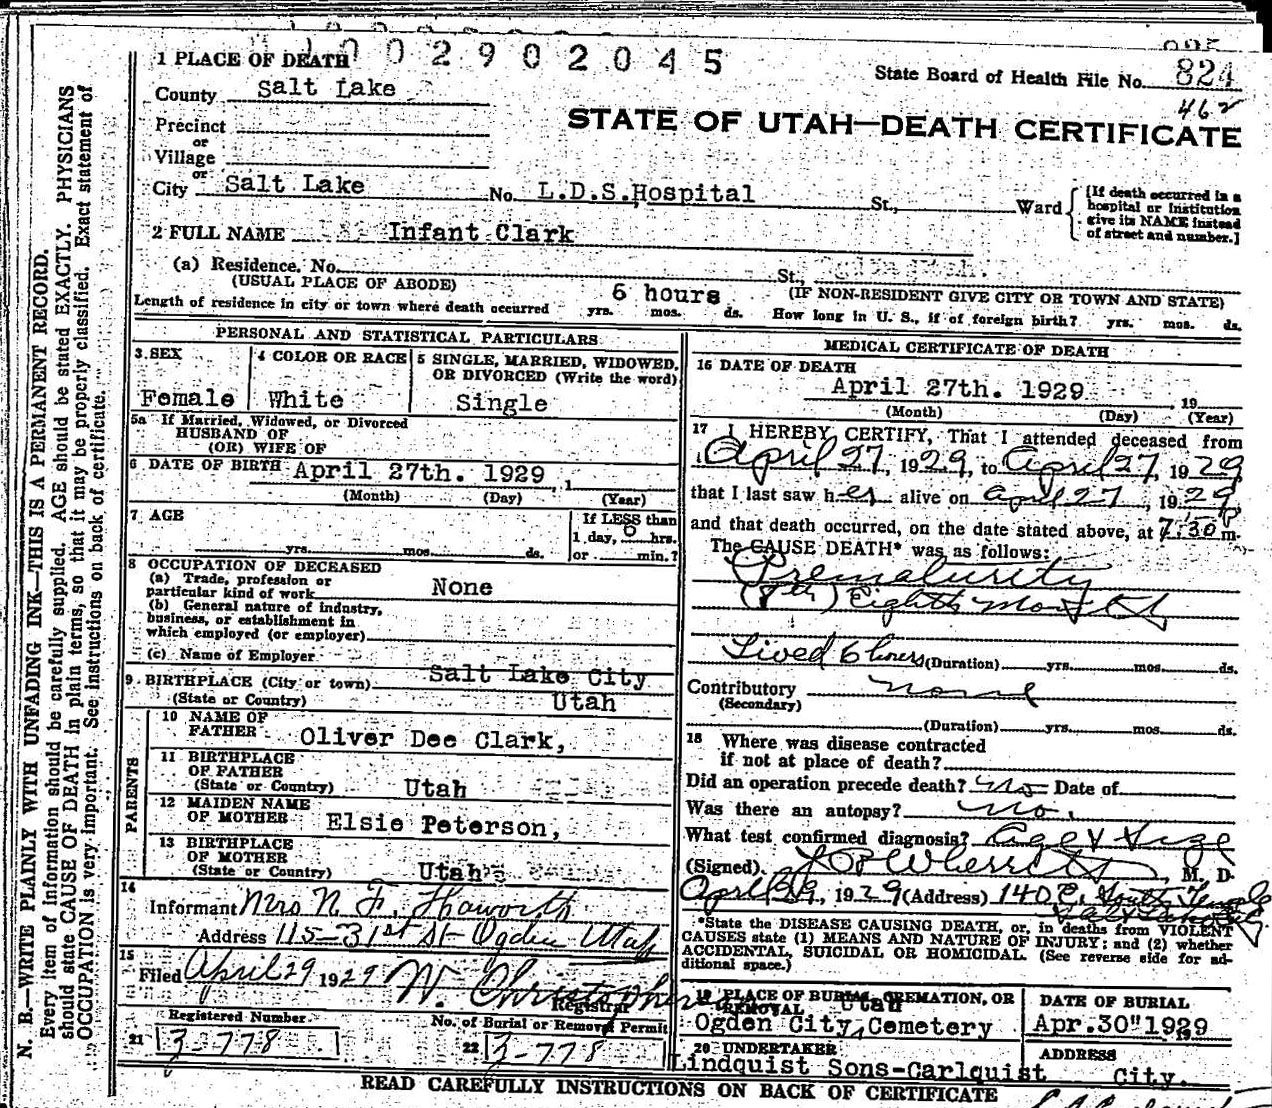 1002902045
1 PLACE OF DEATH
State Board of Health File No. 824
County Salt Lake
462
STATE OF UTAH—DEATH CERTIFICATE
Precinct
or
Village
or
City Salt Lake No. L.D.S. Hospital St., Ward
[If death occurred in a
hospital or institution
give its NAME instead
of street and number.]
2 FULL NAME Infant Clark
(a) Residence. No. St.,
(USUAL PLACE OF ABODE) (IF NON-RESIDENT GIVE CITY OR TOWN AND STATE)
6 hours
Length of residence in city or town where death occurred yrs. mos. ds. How long in U. S., if of foreign birth? yrs. mos. ds.
PERSONAL AND STATISTICAL PARTICULARS
3 SEX
Female
4 COLOR OR RACE
White
5 SINGLE, MARRIED, WIDOWED,
OR DIVORCED (Write the word)
Single
5a If Married, Widowed, or Divorced
HUSBAND OF
(OR) WIFE OF
6 DATE OF BIRTH April 27th. 1929 , 1
(Month) (Day) (Year)
7 AGE
yrs. mos. ds.
If LESS than
1 day, 6 hrs.
or min.?
8 OCCUPATION OF DECEASED
(a) Trade, profession or
particular kind of work None
(b) General nature of industry,
business, or establishment in
which employed (or employer)
(c) Name of Employer
9 BIRTHPLACE (City or town) Salt Lake City
(State or Country) Utah
PARENTS
10 NAME OF
FATHER Oliver Dee Clark,
11 BIRTHPLACE
OF FATHER
(State or Country) Utah
12 MAIDEN NAME
OF MOTHER Elsie Peterson,
13 BIRTHPLACE
OF MOTHER
(State or Country) Utah
14
Informant Mrs N. F. Haworth
Address 115-31st St Ogden Utah
15
Filed April 29 1929 W. Christopherson
Registrar
Registered Number
21 3-778
No. of Burial or Removal Permit
22 3-778
MEDICAL CERTIFICATE OF DEATH
16 DATE OF DEATH
April 27th. 1929 , 19
(Month) (Day) (Year)
17 I HEREBY CERTIFY, That I attended deceased from
April 27, 1929, to April 27, 1929
that I last saw her alive on April 27, 1929
and that death occurred, on the date stated above, at 7:30 P m.
The CAUSE DEATH* was as follows:
Prematurity
(8th) Eighth Month
Lived 6 hours (Duration) yrs. mos. ds.
Contributory none
(Secondary)
(Duration) yrs. mos. ds.
18 Where was disease contracted
if not at place of death?
Did an operation precede death? No Date of
Was there an autopsy? No.
What test confirmed diagnosis? Age & Size
(Signed) Wherritt, M. D.
April 29, 1929 (Address) 140 E. South Temple
Salt Lake City
*State the DISEASE CAUSING DEATH, or, in deaths from VIOLENT
CAUSES state (1) MEANS AND NATURE OF INJURY; and (2) whether
ACCIDENTAL, SUICIDAL OR HOMICIDAL. (See reverse side for ad-
ditional space.)
19 PLACE OF BURIAL, CREMATION, OR
REMOVAL Utah
Ogden City, Cemetery
DATE OF BURIAL
Apr. 30" 1929
19
20 UNDERTAKER
Lindquist Sons-Carlquist
ADDRESS
City.
READ CAREFULLY INSTRUCTIONS ON BACK OF CERTIFICATE
N. B.—WRITE PLAINLY WITH UNFADING INK—THIS IS A PERMANENT RECORD.
Every item of information should be carefully supplied. AGE should be stated EXACTLY. PHYSICIANS
should state CAUSE OF DEATH in plain terms, so that it may be properly classified. Exact statement of
OCCUPATION is very important. See instructions on back of certificate.